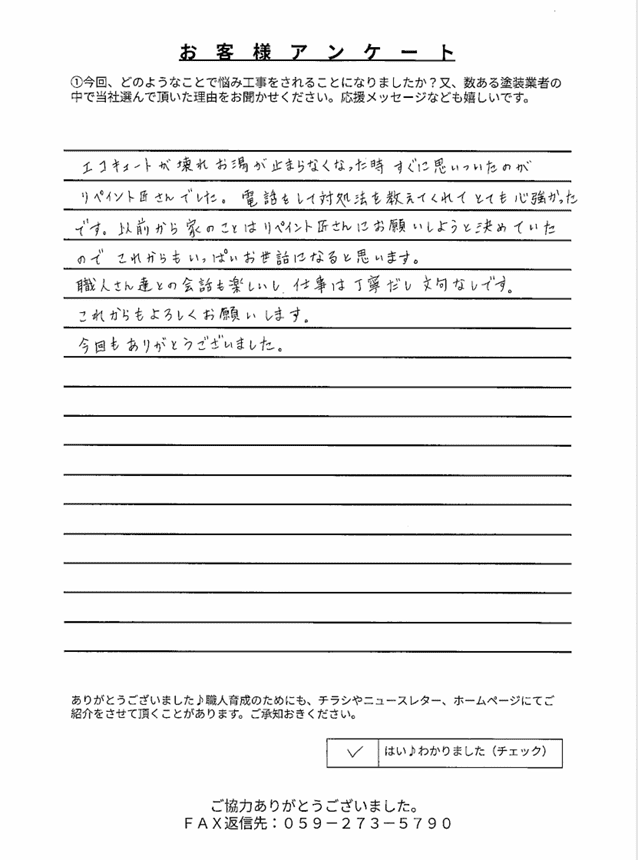 お客様アンケート
①今回、どのようなことで悩み工事をされることになりましたか？又、数ある塗装業者の
中で当社選んで頂いた理由をお聞かせください。応援メッセージなども嬉しいです。
エコキュートが壊れお湯が止まらなくなった時 すぐに思いついたのが
リペイント匠さんでした。電話をして対処法を教えてくれてとても心強かった
です。以前から家のことはリペイント匠さんにお願いしようと決めていた
ので これからもいっぱいお世話になると思います。
職人さん達との会話も楽しいし、仕事は丁寧だし 文句なしです。
これからもよろしくお願いします。
今回もありがとうございました。
ありがとうございました♪職人育成のためにも、チラシやニュースレター、ホームページにてご
紹介をさせて頂くことがあります。ご承知おきください。
✓ はい♪わかりました（チェック）
ご協力ありがとうございました。
ＦＡＸ返信先：０５９－２７３－５７９０